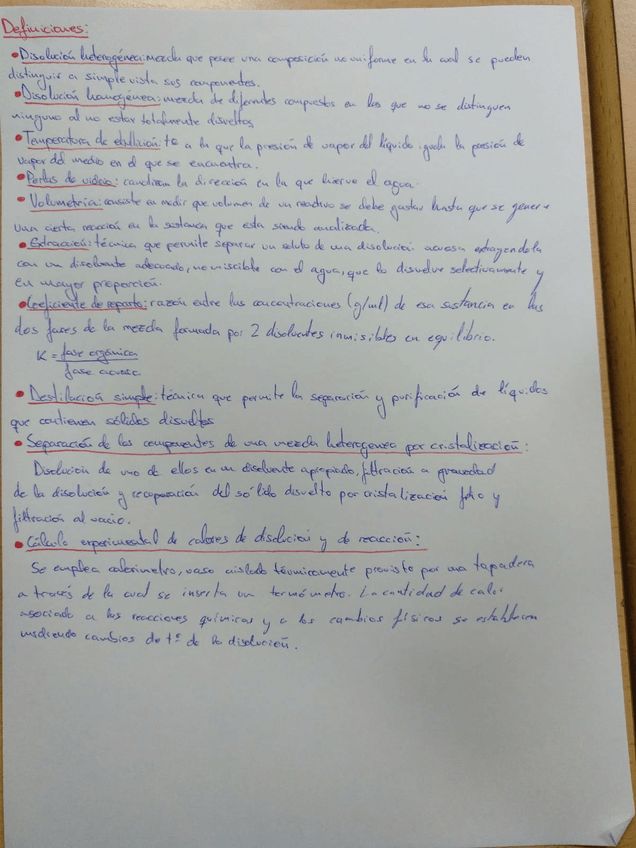 Definiciones:
• Disolución heterogénea: mezcla que posee una composición no uniforme en la cual se pueden
distinguir a simple vista sus componentes.
• Disolución homogénea: mezcla de diferentes compuestos en los que no se distinguen
ninguno al no estar totalmente disueltos
• Temperatura de ebullición: tª a la que la presión de vapor del líquido iguala la presión de
vapor del medio en el que se encuentra.
• Perlas de vidrio: la dirección en la que hierve el agua.
• Volumetría: consiste en medir que volumen de un reactivo se debe gastar hasta que se genere
una cierta reacción en la sustancia que esta siendo analizada.
• Extracción: técnica que permite separar un soluto de una disolución acuosa extrayendola
con un disolvente adecuado, no miscible con el agua, que lo disuelve selectivamente y
en mayor proporción.
• Coeficiente de reparto: razón entre las concentraciones (g/ml) de esa sustancia en las
dos fases de la mezcla formada por 2 disolventes inmisibles en equilibrio.
K = fase orgánica
fase acuosa
• Destilación simple: técnica que permite la separación y purificación de líquidos
que contienen sólidos disueltos
• Separación de los componentes de una mezcla heterogenea por cristalización:
Disolución de uno de ellos en un disolvente apropiado, filtración a gravedad
de la disolución y recuperación del sólido disuelto por cristalización frío y
filtración al vacío.
• Cálculo experimental de calores de disolución y de reacción:
Se emplea calorimetro, vaso aislado térmicamente provisto por una tapadera
a través de la cual se inserta un termómetro. La cantidad de calor
asociado a las reacciones químicas y a los cambios físicos se establecen
midiendo cambios de tº de la disolución.